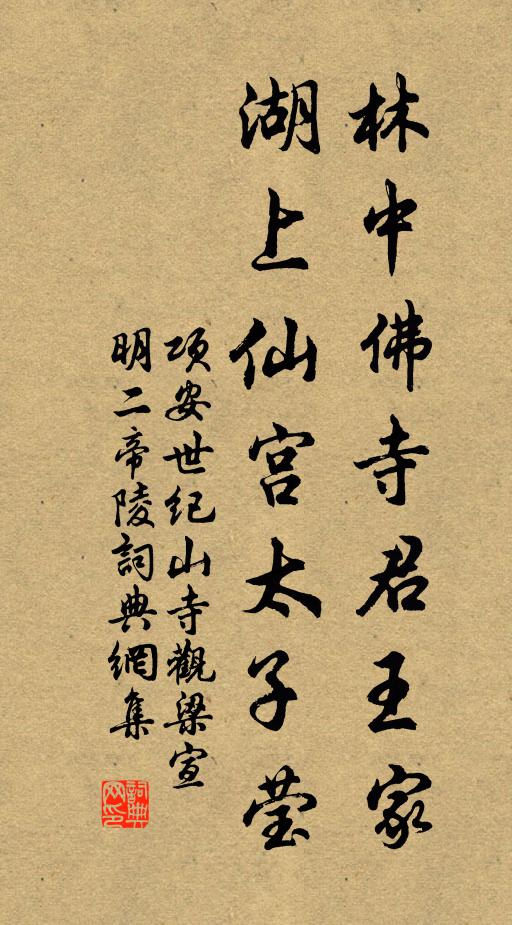 林中佛寺君王家
湖上仙宫太子莹
项安世纪山寺觀梁宣
明二帝陵詞典網集
詞典网印